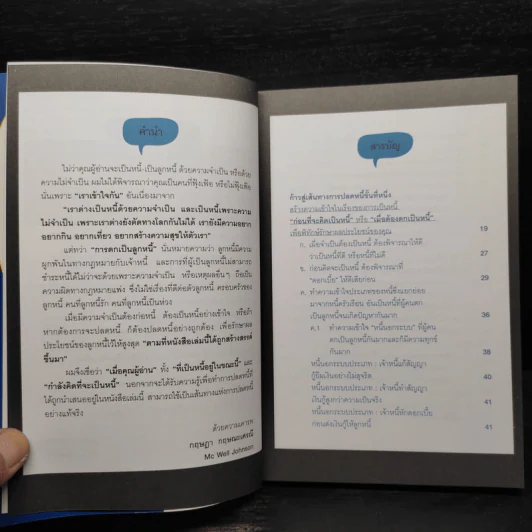 คำนำ
ไม่ว่าคุณผู้อ่านจะเป็นหนี้ เป็นลูกหนี้ ด้วยความจำเป็น หรือด้วย
ความไม่จำเป็น ผมไม่ได้พิจารณาว่าคุณเป็นคนที่ฟุ้งเฟ้อ หรือไม่ฟุ้งเฟ้อ
นั่นเพราะ "เราเข้าใจกัน" อันเนื่องมาจาก
"เราต่างเป็นหนี้ด้วยความจำเป็น และเป็นหนี้เพราะความ
ไม่จำเป็น เพราะเราต่างยังตัดทางโลกกันไม่ได้ เรายังมีความอยาก
อยากกิน อยากเที่ยว อยากสร้างความสุขให้ตัวเรา"
แต่ทว่า "การตกเป็นลูกหนี้" นั่นหมายความว่า ลูกหนี้มีความ
ผูกพันในทางกฎหมายกับเจ้าหนี้ และการที่ผู้เป็นลูกหนี้ไม่สามารถ
ชำระหนี้ได้ไม่ว่าจะด้วยเพราะความจำเป็น หรือเหตุผลอื่นๆ ถือเป็น
ความผิดทางกฎหมายแพ่ง ซึ่งไม่ใช่เรื่องที่ดีต่อตัวลูกหนี้ ครอบครัวของ
ลูกหนี้ คนที่ลูกหนี้รัก คนที่ลูกหนี้เป็นห่วง
เมื่อมีความจำเป็นต้องก่อหนี้ ต้องเป็นหนี้อย่างเข้าใจ หรือถ้า
หากต้องการจะปลดหนี้ ก็ต้องปลดหนี้อย่างถูกต้อง เพื่อรักษาผล
ประโยชน์ของลูกหนี้ไว้ให้สูงสุด "ตามที่หนังสือเล่มนี้ได้ถูกสร้างสรรค์
ขึ้นมา"
ผมจึงเชื่อว่า "เมื่อคุณผู้อ่าน" ทั้ง "ที่เป็นหนี้อยู่ในขณะนี้" และ
"กำลังคิดที่จะเป็นหนี้" นอกจากจะได้รับความรู้เพื่อทำการปลดหนี้ที่
ได้ถูกนำเสนออยู่ในหนังสือเล่มนี้ สามารถใช้เป็นเส้นทางแห่งการปลดหนี้
อย่างแท้จริง
ด้วยความเคารพ
กฤษฎา กฤษณะเศรณี
Mc Wall Johnson
สารบัญ
ก้าวสู่เส้นทางการปลดหนี้ขั้นที่หนึ่ง
สร้างความเข้าใจในเรื่องของการเป็นหนี้
"ก่อนที่จะคิดเป็นหนี้" หรือ "เมื่อต้องตกเป็นหนี้"
เพื่อพิทักษ์รักษาผลประโยชน์ของคุณ 19
ก. เมื่อจำเป็นต้องเป็นหนี้ ต้องพิจารณาให้ดี
ว่าเป็นหนี้ที่ดี หรือหนี้ที่ไม่ดี 27
ข. ก่อนคิดจะเป็นหนี้ ต้องพิจารณาที่
"ดอกเบี้ย" ให้ดีเสียก่อน 29
ค. ทำความเข้าใจประเภทของหนี้ซึ่งแยกย่อย
มาจากหนี้ครัวเรือน อันเป็นหนี้ที่ผู้คนตก
เป็นลูกหนี้จนเกิดปัญหากันมาก 36
ค.1 ทำความเข้าใจ "หนี้นอกระบบ" ที่ผู้คน
ตกเป็นลูกหนี้กันมากและก็มีความทุกข์
กันมาก 38
หนี้นอกระบบประเภท : เจ้าหนี้แก้สัญญา
กู้ยืมเงินอย่างไม่สุจริต 40
หนี้นอกระบบประเภท : เจ้าหนี้ทำสัญญา
เงินกู้สูงกว่าความเป็นจริง 41
หนี้นอกระบบประเภท : เจ้าหนี้หักดอกเบี้ย
ก่อนส่งเงินกู้ให้ลูกหนี้ 41